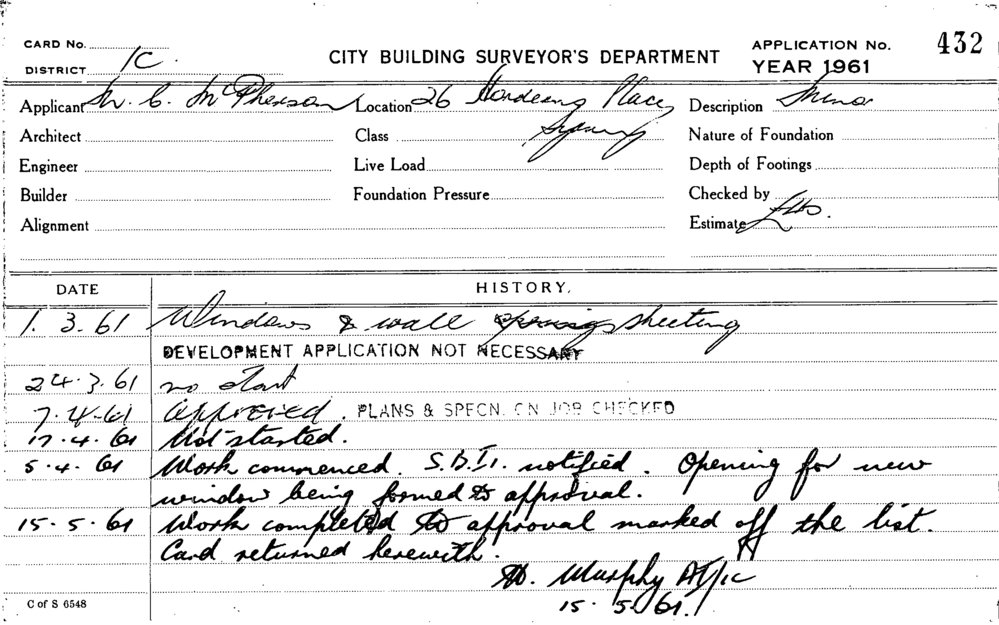 CARD No.
DISTRICT 1C.
CITY BUILDING SURVEYOR'S DEPARTMENT
APPLICATION No. 432
YEAR 1961
Applicant C. McPherson Location 26 Place, Description Minor
Architect Class Sydney Nature of Foundation
Engineer Live Load Depth of Footings
Builder Foundation Pressure Checked by
Alignment Estimate
DATE HISTORY.
1.3.61 Windows & wall sheeting
DEVELOPMENT APPLICATION NOT NECESSARY
24.3.61 no start
7.4.61 Approved. PLANS & SPECN. ON JOB CHECKED
17.4.61 Not started.
5.4.61 Work commenced. S.D.I. notified. Opening for new
window being formed to approval.
15.5.61 Work completed to approval marked off the list.
Card returned herewith.
Murphy
15.5.61.
C of S 6548